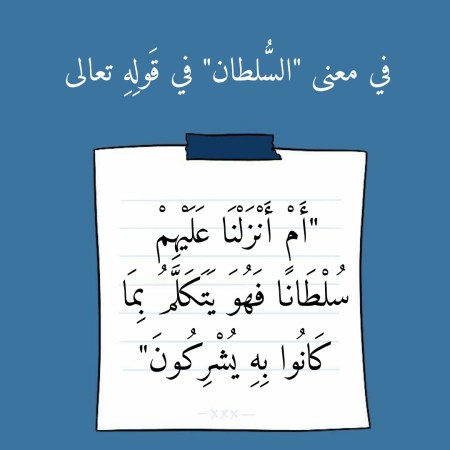 في معنى "السُّلطان" في قَولِهِ تعالى
"أَمْ أَنْزَلْنَا عَلَيْهِمْ
سُلْطَانًا فَهُوَ يَتَكَلَّمُ بِمَا
كَانُوا بِهِ يُشْرِكُونَ"